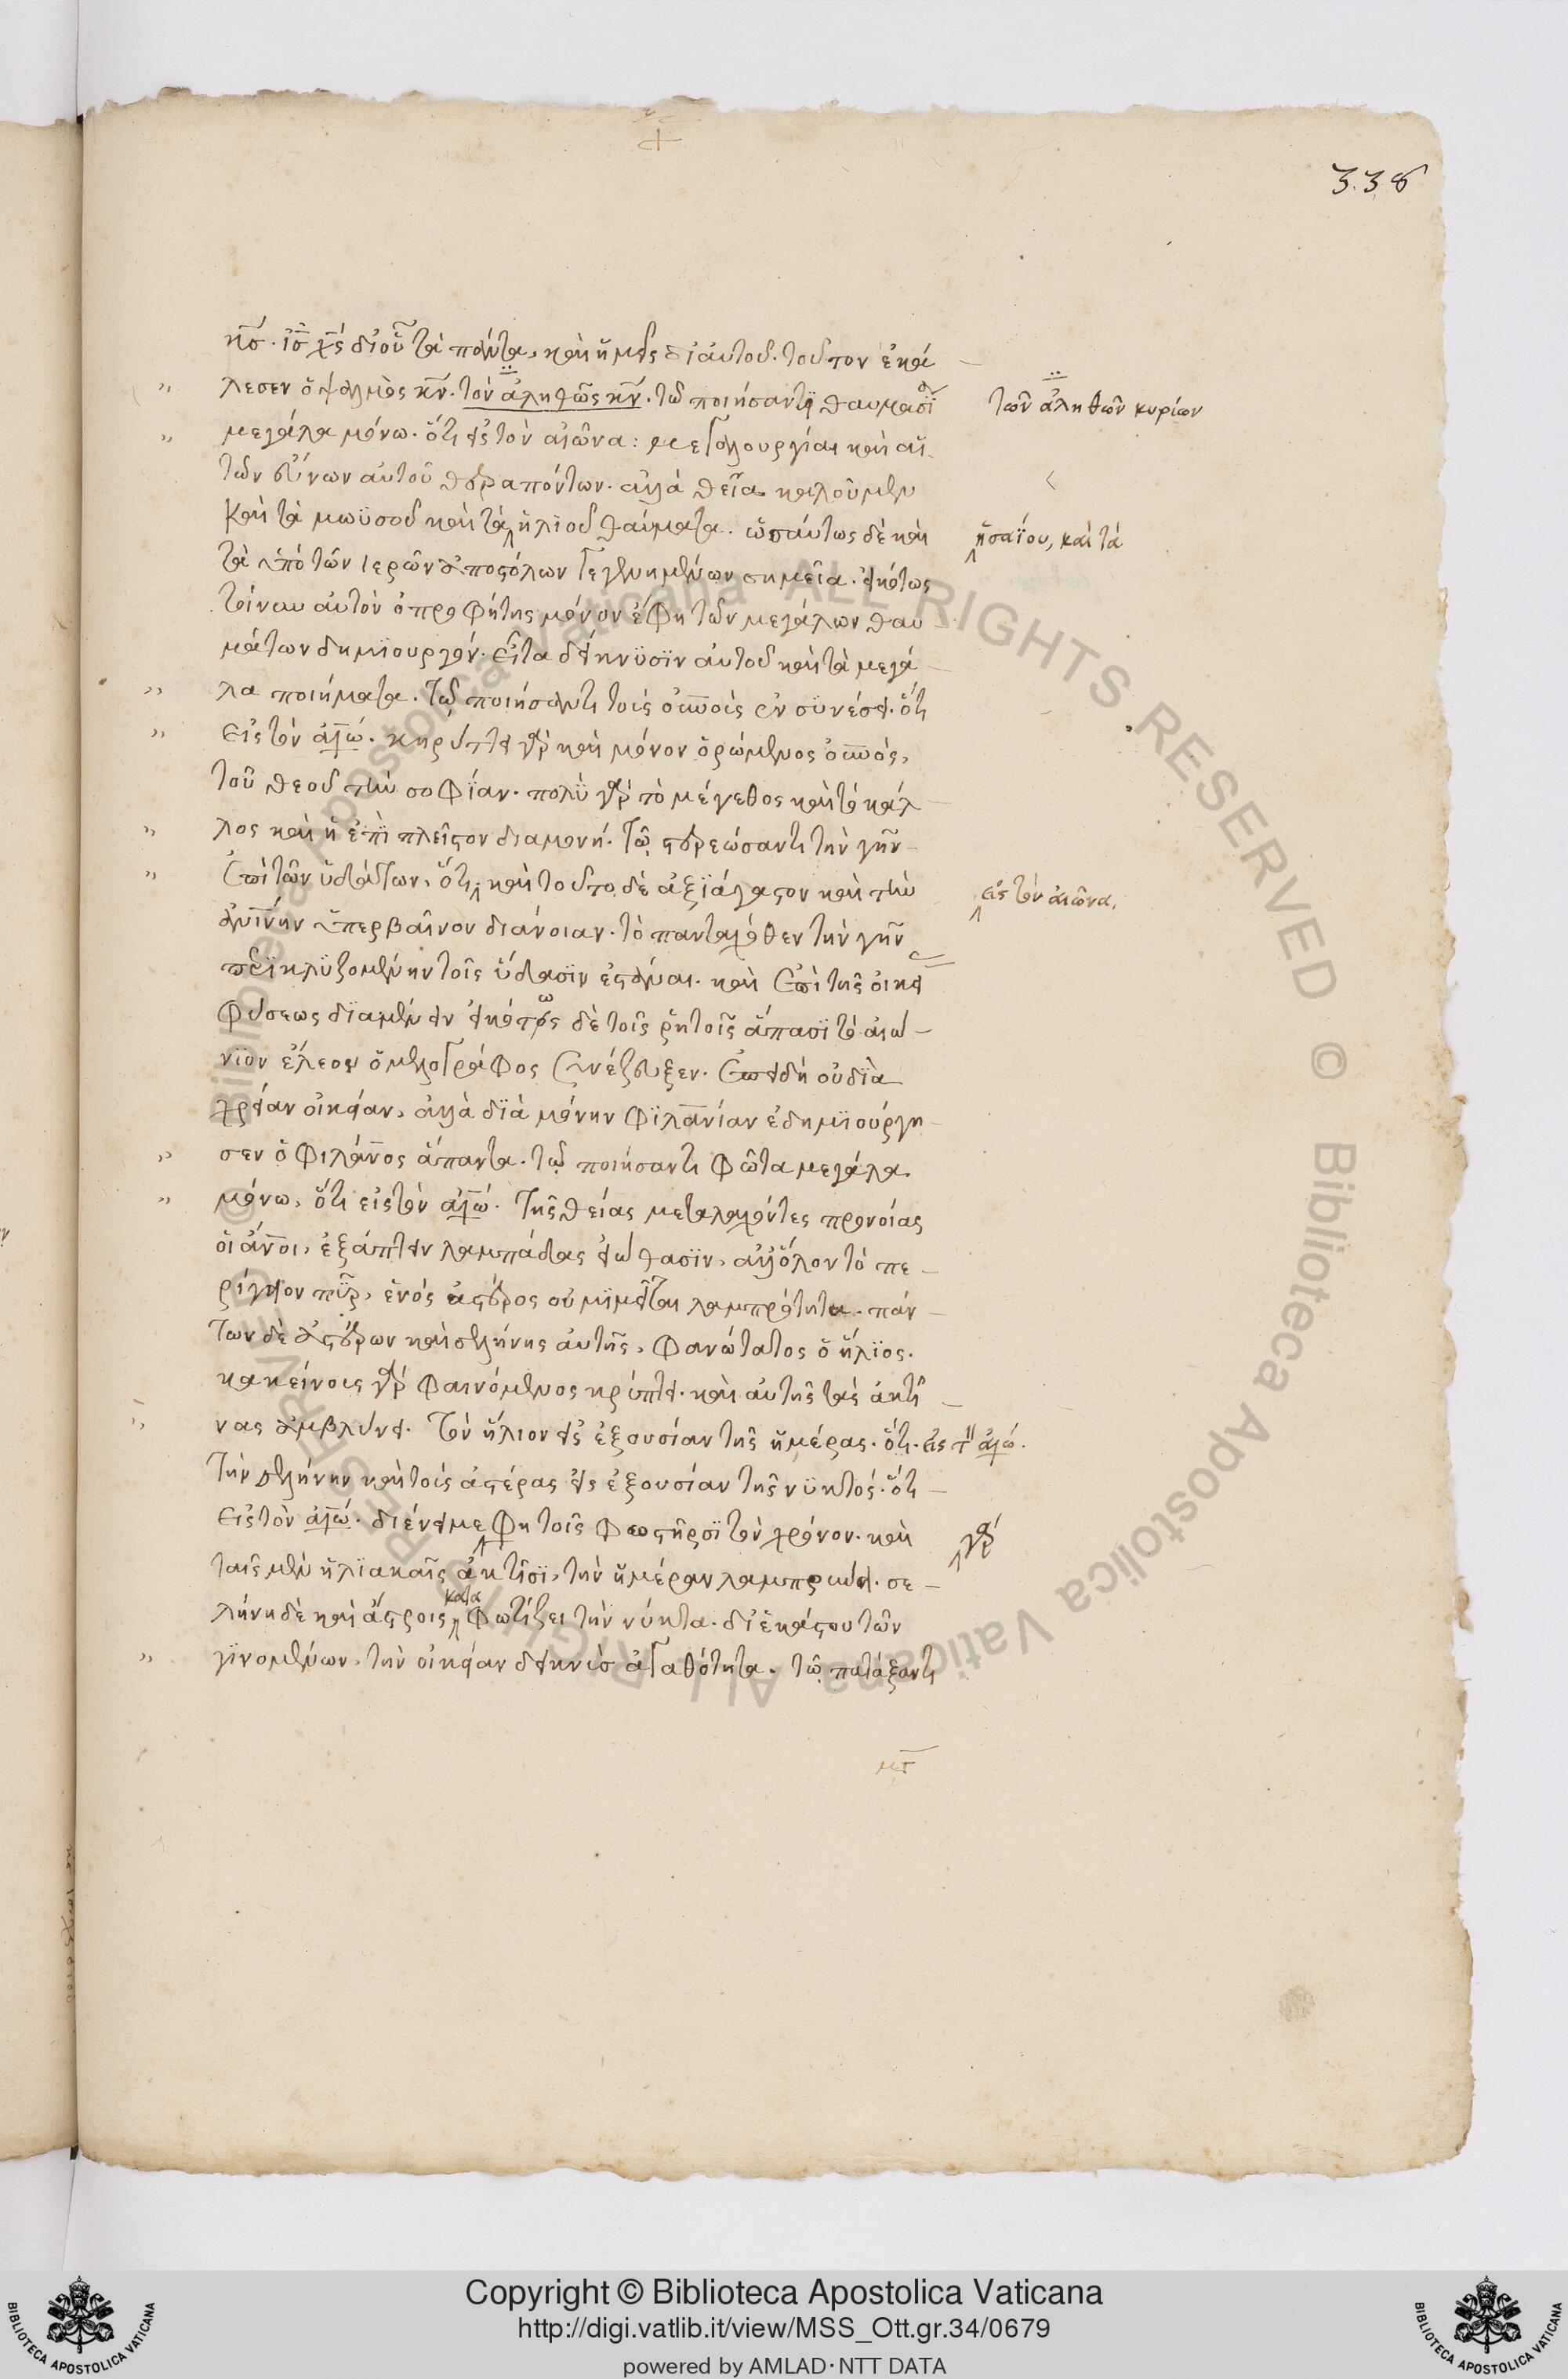 338
κ̅ς̅. ἰ̅ς̅ χ̅ς̅ δι οὗ τὰ πάντα, καὶ ἡμεῖς δι αυτοῦ. τοῦτον ἐκά
λεσεν ὁ ψαλμὸς κ̅ν̅. τὸν ἀληθῶς κ̅ν̅. τῶ ποιήσαντι θαυμάσϊα
τῶν ἀληθῶν κυρίων
μεγάλα μόνω. ὅτι εἰς τὸν αἰῶνα: μεγαλουργίαι καὶ αἱ
τῶν εὔνων αὐτοῦ θεραπόντων. ἀλλὰ θεῖα καλοῦμεν
καὶ τὰ μωϋσοῦ καὶ τὰ ἠλϊοῦ θαύματα. ὡσαύτως δὲ καὶ
ἠσαΐου, καὶ τὰ
τὰ ὑπὸ τῶν ιερῶν ἀποστόλων γεγενημένων σημεῖα. εἰκότως
τοίνυν αὐτὸν ὁ προφήτης μόνον ἔφη τῶν μεγάλων θαυ
μάτων δημϊουργόν. εἶτα δείκνϋσϊν αὐτοῦ καὶ τὰ μεγά
λα ποιήματα. τῶ ποιήσαντι τοὺς οὐ̅νοὺς ἐν συνέσει. ὅτι
εἰς τὸν αἰῶ. κηρύττει γὰρ καὶ μόνον ὁρώμενος οὐ̅νός,
τοῦ θεοῦ τὴν σοφΐαν. πολὺ γὰρ τὸ μέγεθος καὶ τὸ κάλ
λος καὶ ἡ ἐπὶ πλεῖστον διαμονή. τῶ στερεώσαντι τὴν γῆν
ἐπὶ τῶν ὑδάτων, ὅτι καὶ τοῦτο δὲ ἀξϊάγαστον καὶ τὴν
εἰς τὸν αἰῶνα,
ἀν̅ΐνην ὑπερβαῖνον διάνοιαν. τὸ πανταχόθεν τὴν γῆν
περϊκλϋζομένην τοῖς ὕδασϊν ἑστάναι. καὶ ἐπὶ τῆς οἰκεί
φύσεως δϊαμένειν εἰκότως δὲ τοῖς ῥητοῖς ἅπασϊ τὸ αἰώ
νϊον ἔλεος ὁ μελογράφος συνέζευξεν. ἐπειδὴ οὐ δϊὰ
χρείαν οἰκείαν, ἀλλὰ δϊὰ μόνην φϊλα̅νίαν ἐδημϊούργη
σεν ὁ φιλάν̅ος ἅπαντα. τῶ ποιήσαντι φῶτα μεγάλα
μόνω, ὅτι εἰς τὸν αἰῶ. τῆς θείας μεταλαχόντες προνοίας
οἱ ἄν̅οι, ἐξάπτειν λαμπάδας εἰώθασϊν, ἀλλ ὅλον τὸ πε
ρίγειον πῦρ, ἑνὸς ἀστέρος οὐ μϊμεῖται λαμπρότητα. πάν
των δὲ ἀστέρων καὶ σελήνης αὐτῆς, φανώτατος ὁ ἥλϊος.
κακείνους γὰρ φαινόμενος κρύπτει. καὶ αὐτῆς τὰς ἀκτῖ
νας ἀμβλύνει. τὸν ἥλιον εἰς ἐξουσίαν τῆς ἡμέρας. ὅτι. εἰς τὸν αἰῶ.
τὴν σελήνην καὶ τοὺς ἀστέρας εἰς ἐξουσίαν τῆς νϋκτός. ὅτι
εἰς τὸν αἰῶ. διένειμε φη τοῖς φωστῆρσϊ τὸν χρόνον. καὶ
γὰρ
ταῖς μὲν ἡλϊακαῖς ἀκτῖσϊ, τὴν ἡμέραν λαμπρύνει. σε
λήνη δὲ καὶ ἄστροις καταφωτίζει τὴν νύκτα. δι ἑκάστου τῶν
γϊνομένων, τὴν οἰκείαν δεικνὺς ἀγαθότητα. τῶ πατάξαντι
Copyright © Biblioteca Apostolica Vaticana
http://digi.vatlib.it/view/MSS_Ott.gr.34/0679
powered by AMLAD·NTT DATA